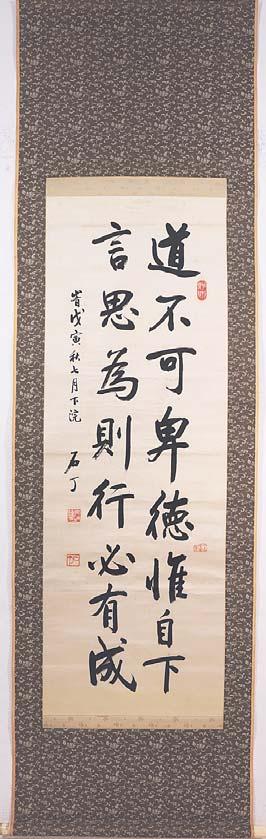 道不可卑徳惟自下
言思為則行必有成
旹戊寅秋七月下浣
石丁